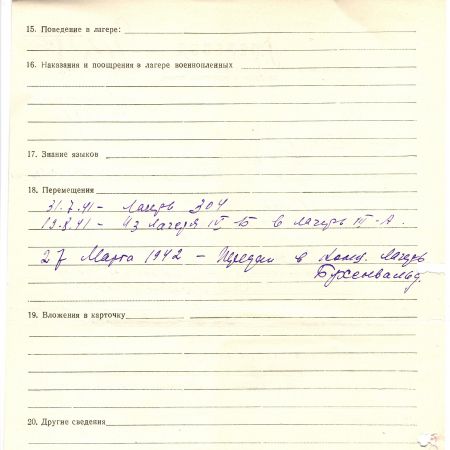 15. Поведение в лагере:
16. Наказания и поощрения в лагере военнопленных
17. Знание языков
18. Перемещения
31.7.41 - Лагерь 304
19.8.41 - Из лагеря IV Б в лагерь III-А.
27 Марта 1942 - Передан в Конц. лагерь
Бухенвальд.
19. Вложения в карточку
20. Другие сведения